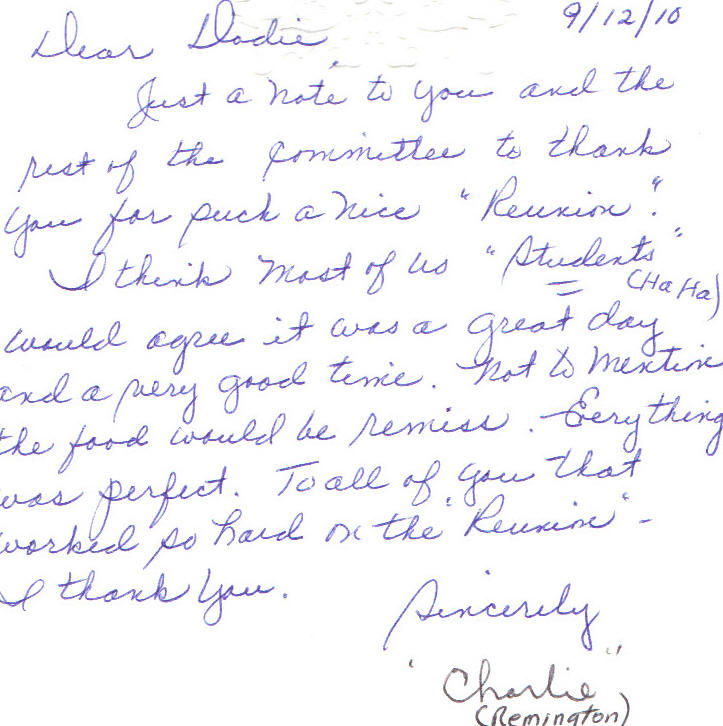 9/12/10
Dear Dodie,
Just a note to you and the
rest of the committee to thank
you for such a nice "Reunion".
I think most of us "Students"
(Ha Ha)
would agree it was a great day
and a very good time. Not to mention
the food would be remiss. Eerything
was perfect. To all of you that
worked so hard on the "Reunion" -
I thank you.
Sincerily
"Charlie"
(Remington)